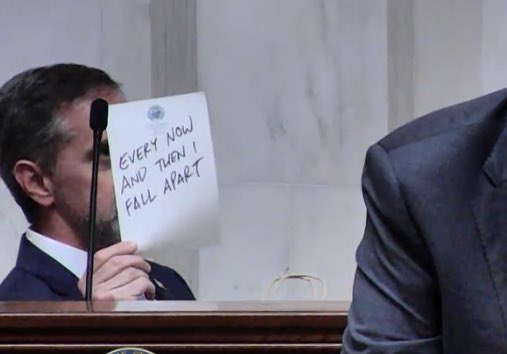 EVERY NOW
AND THEN I
FALL APART